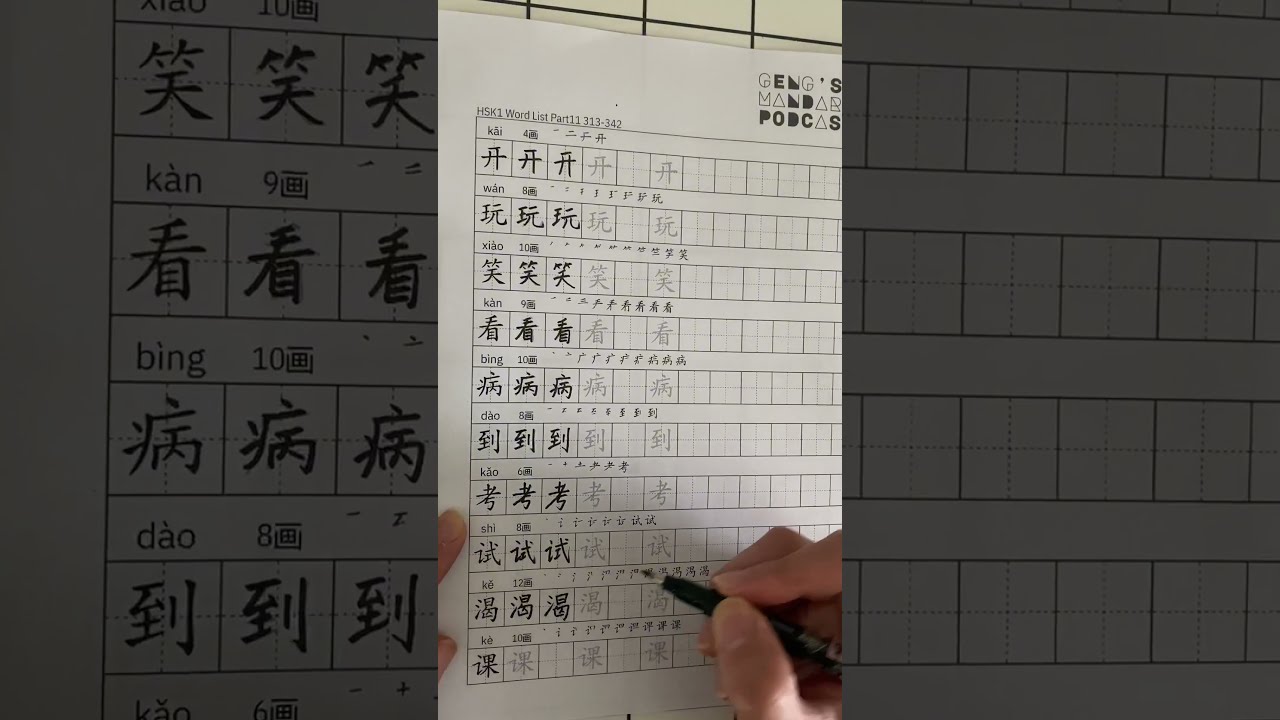 xiào 10画
笑 笑 笑
kàn 9画
看 看 看
bìng 10画
病 病 病
dào 8画
到 到 到
kǎo 6画
GENG'S
MANDAR
PODCAS
HSK1 Word List Part11 313-342
kāi 4画 一 二 开 开
开 开 开 开 开
wán 8画
玩 玩 玩 玩 玩
xiào 10画
笑 笑 笑 笑 笑
kàn 9画
看 看 看 看 看
bìng 10画
病 病 病 病 病
dào 8画
到 到 到 到 到
kǎo 6画
考 考 考 考 考
shì 8画
试 试 试 试 试
kě 12画
渴 渴 渴 渴 渴
kè 10画
课 课 课 课